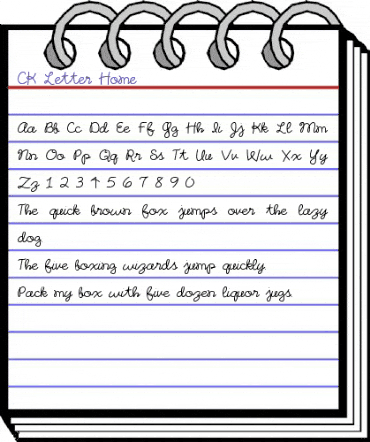 CK Letter Home
Aa Bb Cc Dd Ee Ff Gg Hh Ii Jj Kk Ll Mm
Nn Oo Pp Qq Rr Ss Tt Uu Vv Ww Xx Yy
Zz 1 2 3 4 5 6 7 8 9 0
The quick brown fox jumps over the lazy
dog
The five boxing wizards jump quickly
Pack my box with five dozen liquor jugs